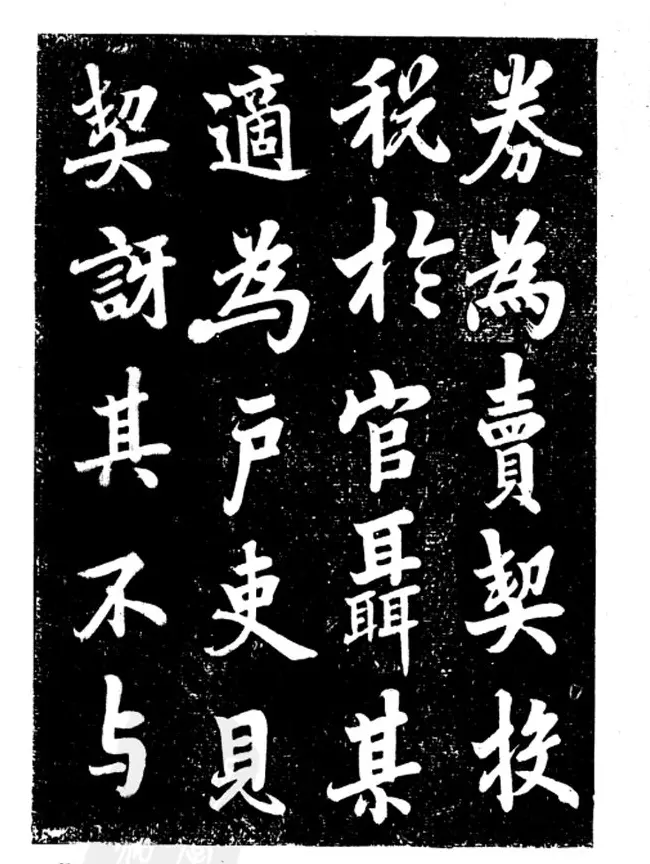 券為賣契投
税於官聶某
適為戶吏見
契訝其不与